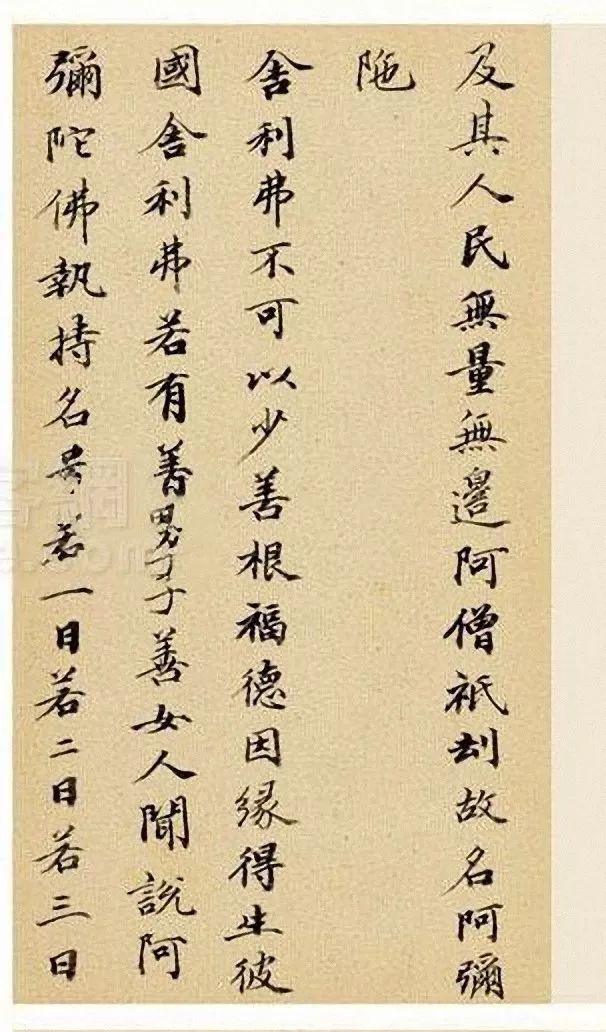 及其人民無量無邊阿僧祇刦故名阿彌
陁
舍利弗不可以少善根福德因緣得生彼
國舍利弗若有善男子善女人聞說阿
彌陀佛執持名号若一日若二日若三日